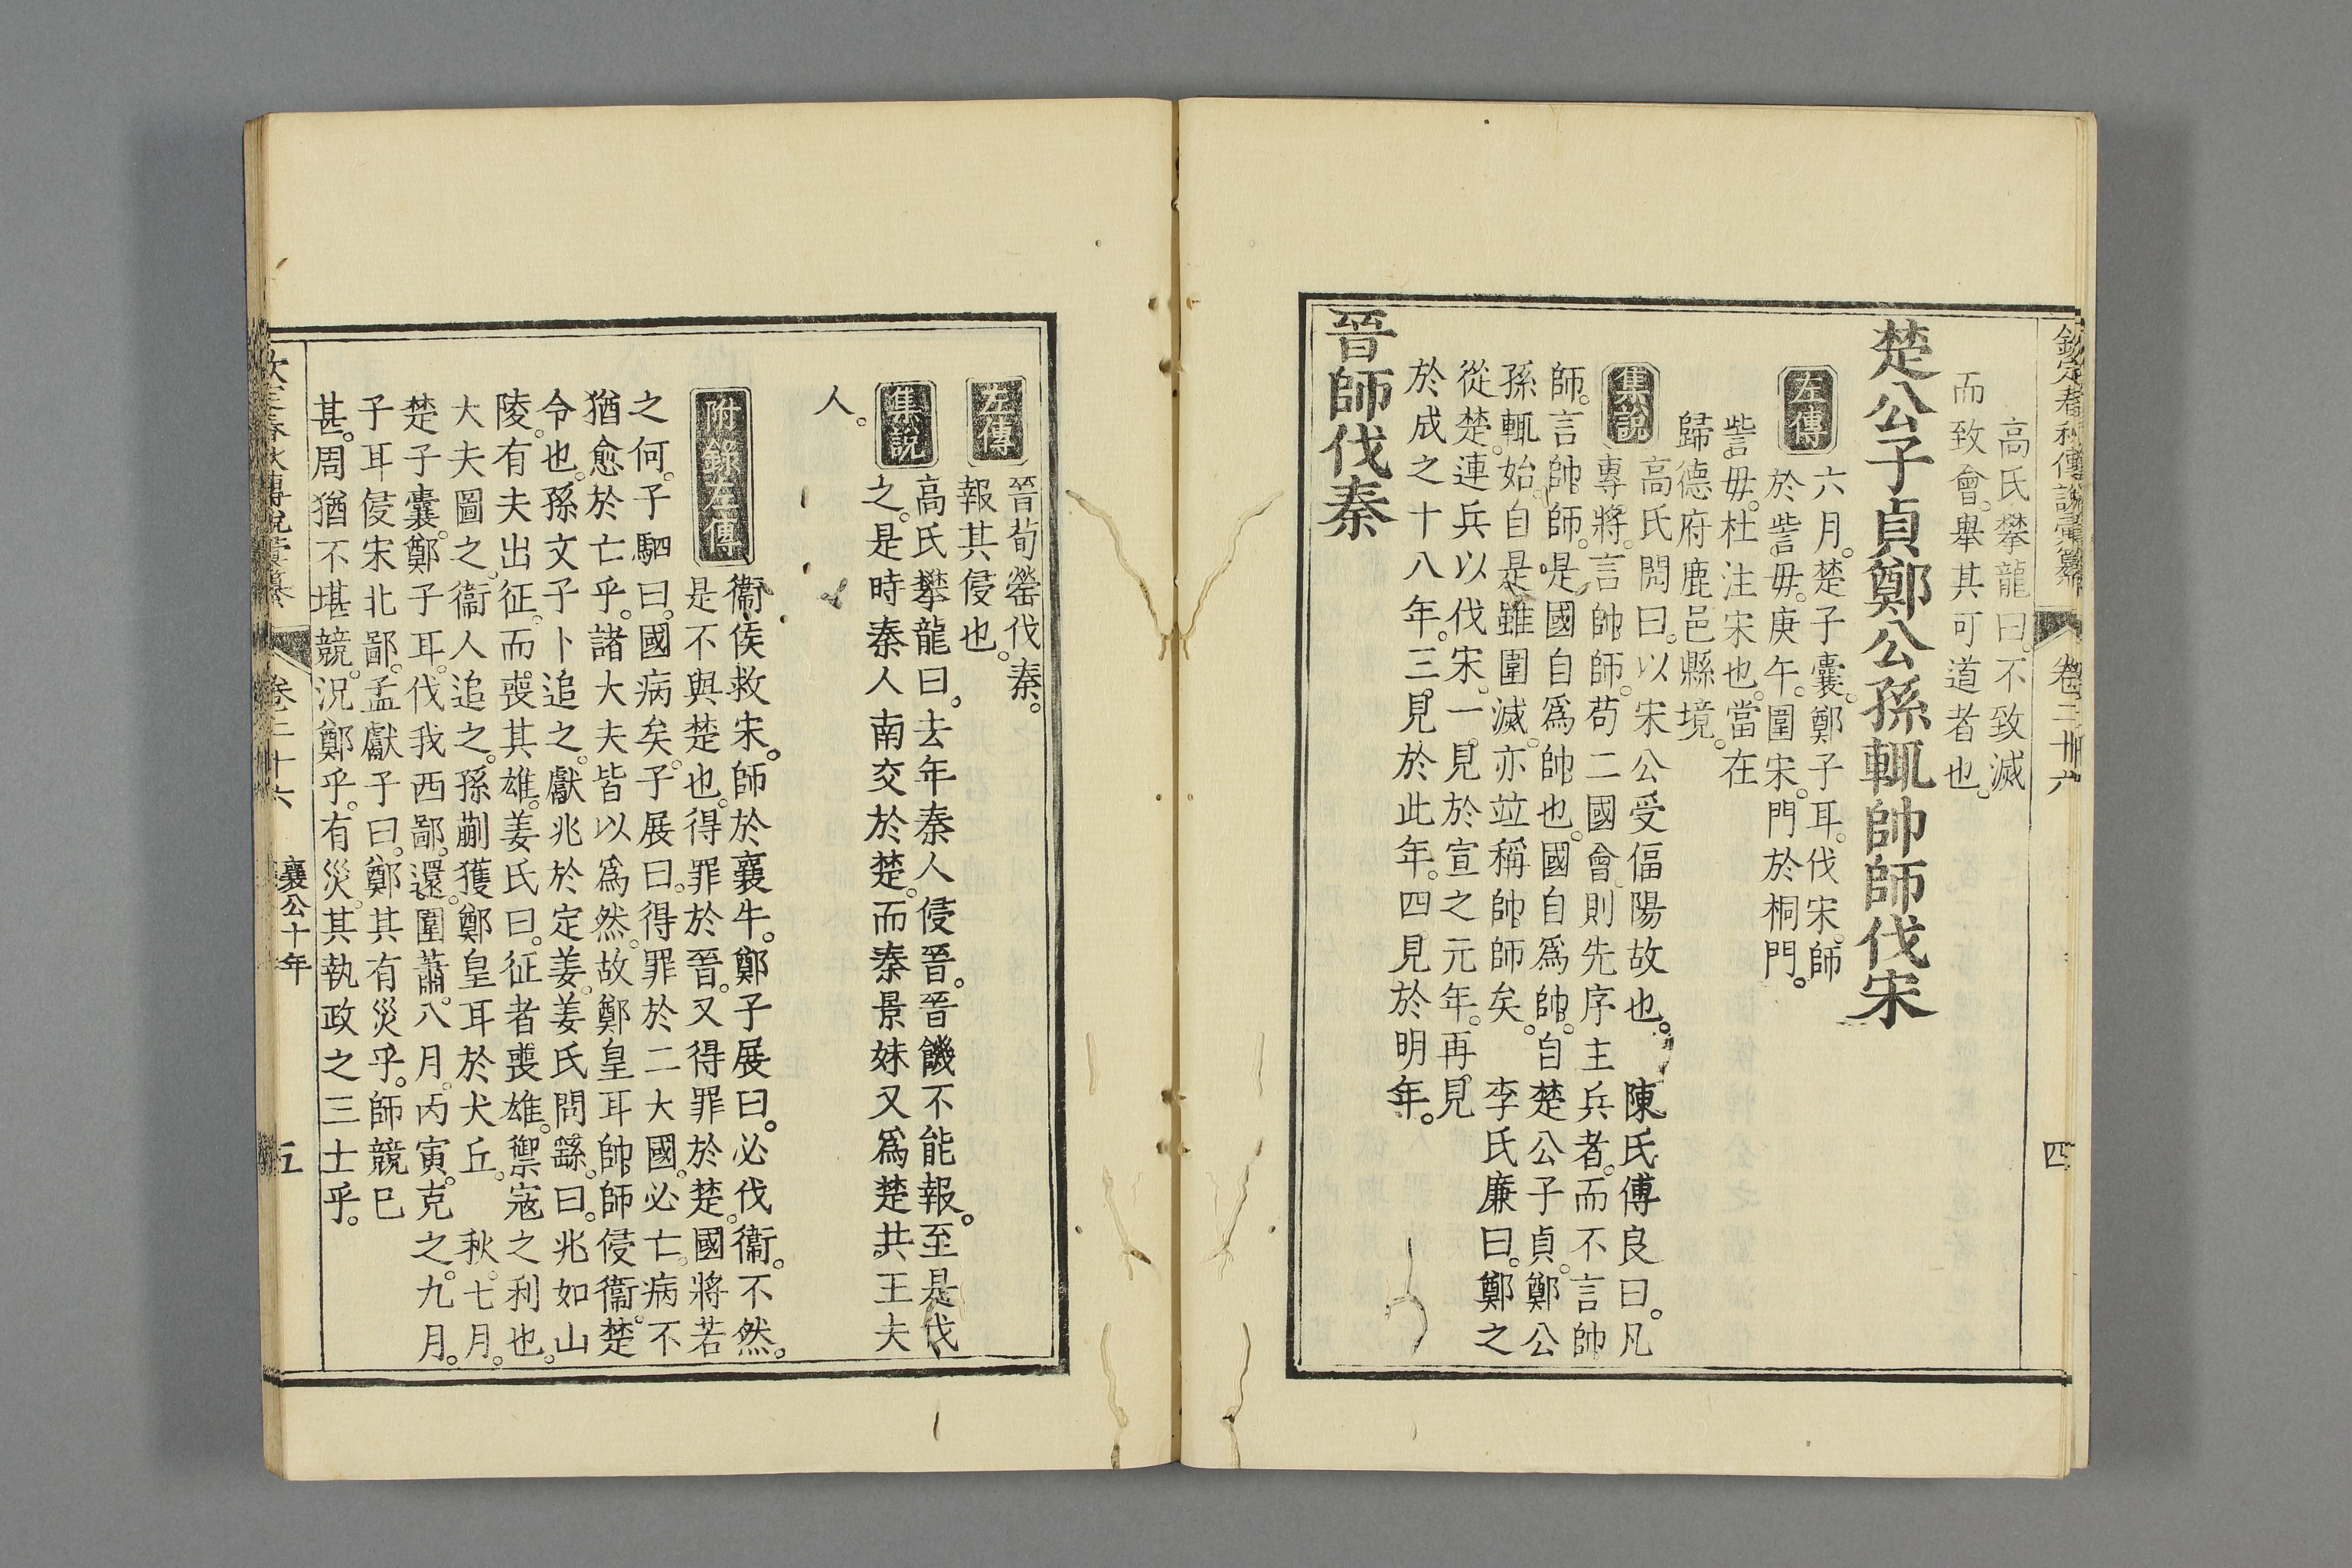 欽定春秋傳說彙纂 卷二十六 四
高氏攀龍曰。不致滅
而致會。舉其可道者也。
楚公子貞鄭公孫輒帥師伐宋
左傳 六月。楚子囊。鄭子耳。伐宋。師
於訾毋。庚午。圍宋。門於桐門。
訾毋。杜注宋也。當在
歸德府鹿邑縣境。
集說 高氏閌曰。以宋公受偪陽故也。 陳氏傅良曰。凡
專將。言帥師。苟二國會。則先序主兵者。而不言帥
師。言帥師。是國自爲帥也。國自爲帥。自楚公子貞。鄭公
孫輒始。自是雖圍滅。亦竝稱帥師矣。 李氏廉曰。鄭之
從楚。連兵以伐宋。一見於宣之元年。再見
於成之十八年。三見於此年。四見於明年。
晉師伐秦
左傳 晉荀罃伐秦。
報其侵也。
集說 高氏攀龍曰。去年秦人侵晉。晉饑不能報。至是伐
之。是時秦人南交於楚。而秦景妹又爲楚共王夫
人。
附錄左傳 衞侯救宋。師於襄牛。鄭子展曰。必伐衞。不然。
是不與楚也。得罪於晉。又得罪於楚。國將若
之何。子駟曰。國病矣。子展曰。得罪於二大國。必亡。病不
猶愈於亡乎。諸大夫皆以爲然。故鄭皇耳帥師侵衞。楚
令也。孫文子卜追之。獻兆於定姜。姜氏問繇。曰。兆如山
陵。有夫出征。而喪其雄。姜氏曰。征者喪雄。禦寇之利也。
大夫圖之。衞人追之。孫蒯獲鄭皇耳於犬丘。 秋。七月。
楚子囊。鄭子耳。伐我西鄙。還。圍蕭。八月。丙寅。克之。九月。
子耳侵宋北鄙。孟獻子曰。鄭其有災乎。師競已
甚。周猶不堪競。況鄭乎。有災。其執政之三士乎。
欽定春秋傳說彙纂 卷二十六 襄公十年 五